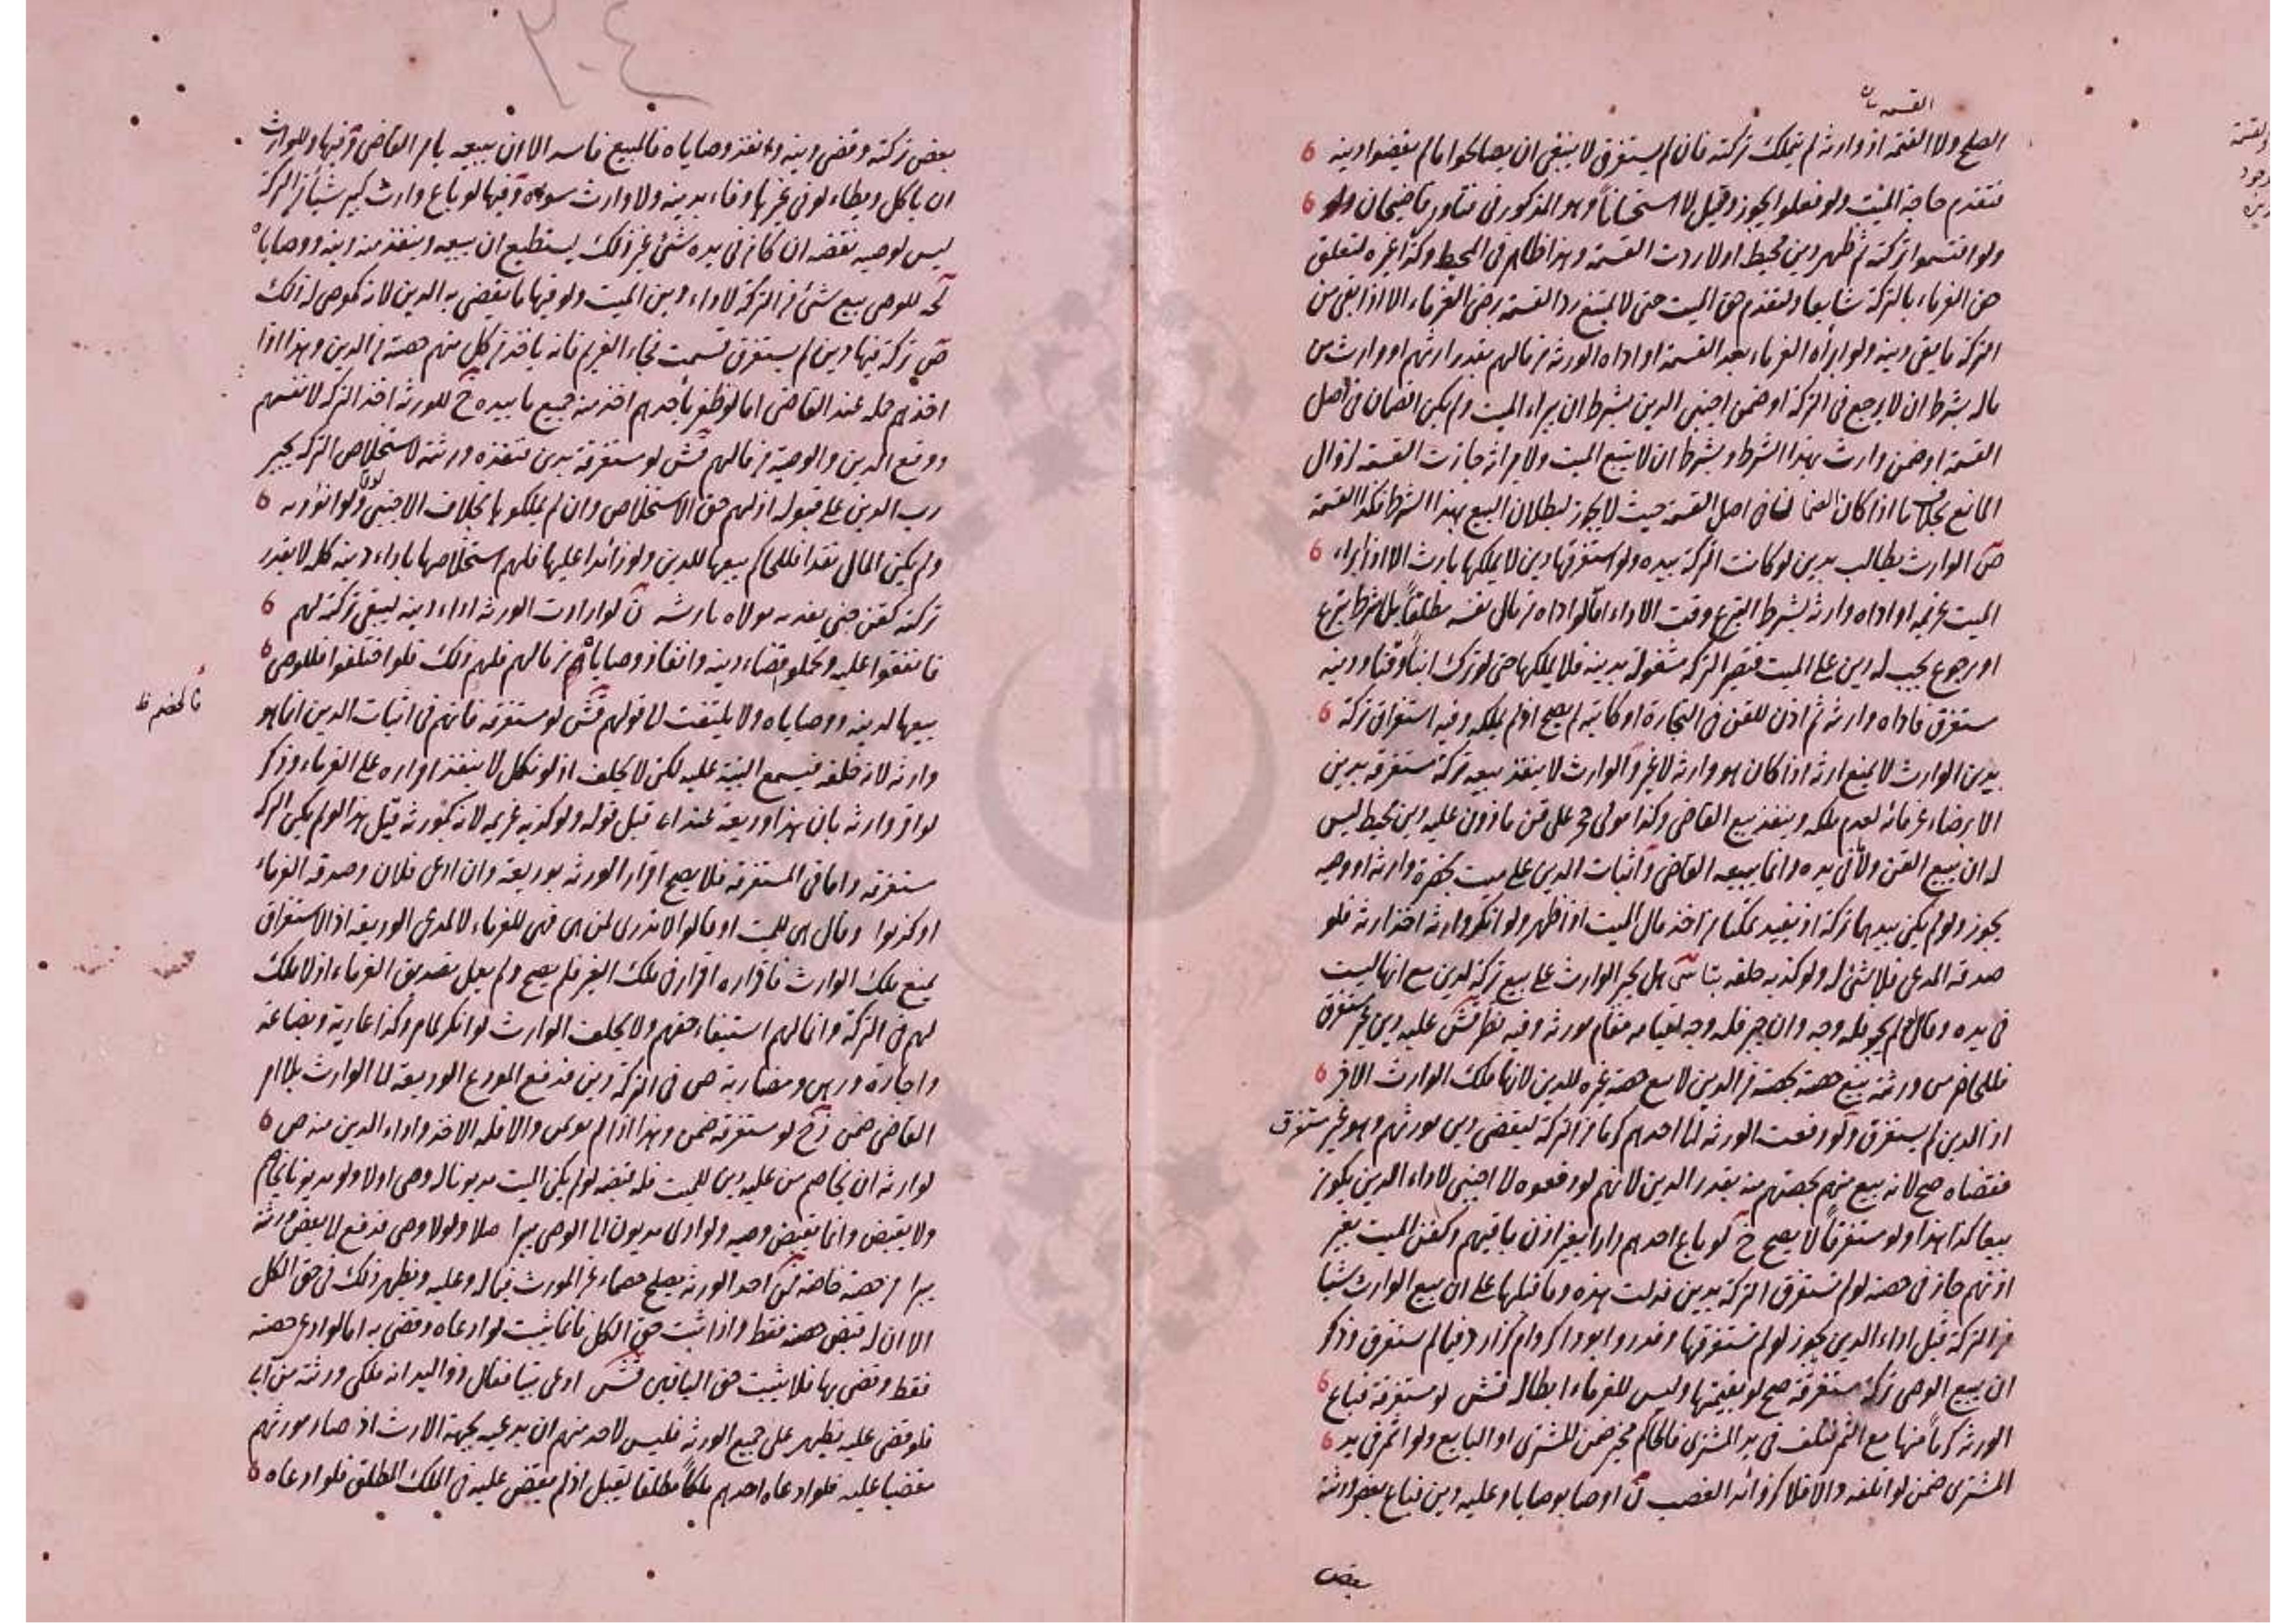 القسمة
الصلح ولا القسمة اذ وارثه لم يتملك تركته فان لم يستغرق لا ينبغى ان يصالحوا ما لم يقضوا دينه
فتقدم حاجة الميت ولو فعلوا يجوز وقيل لا استحسانا وهو المذكور فى فتاوى قاضيخان
ولو اقتسموا تركته ثم ظهر دين محيط اولا ردت القسمة وهذا ظاهر فى المحيط وكذا غيره لتعلق
حق الغرماء بالتركة شايعا ولتقدم حق الميت حتى لا يمتنع رد القسمة برضى الغرماء الا اذا بقى من
التركة ما يفى دينه ولو ابرأه الغرماء بعد القسمة او اداه الورثة من مالهم بقدر ارثهم او وارث من
ماله بشرط ان لا يرجع فى التركة او ضمن اجنبى الدين بشرط ان يبراء الميت ولم يكن الضمان فى اصل
القسمة او ضمن وارث بهذا الشرط وبشرط ان لا يتبع الميت ولا ميراثه جازت القسمة لزوال
المانع بخلاف ما اذا كان الضمان فى اصل القسمة حيث لا يجوز لبطلان البيع بهذا الشرط فكذا القسمة
الوارث يطالب بدين لو كانت التركة بيده ولو استغرقها دين لا يملكها بارث الا اذا ابراء
الميت غريمه او اداه وارثه بشرط التبرع وقت الاداء اما لو اداه من مال نفسه مطلقا بلا شرط تبرع
او رجوع يجب له دين على الميت فتصير التركة مشغولة بدينه فلا يملكها حتى لو ترك ابنا وقنا ودينه
مستغرق فاداه وارثه ثم اذن للقن فى التجارة او كاتبه لم يصح اذ لم يملكه وفيه استغراق تركة
بدين الوارث لا يمنع ارثه اذا كان هو وارثه لا غير والوارث لا ينفذ بيعه تركة مستغرقة بدين
الا برضاء غرمائه لعدم ملكه وينفذ بيع القاضى وكذا مولى حجر على قن ماذون عليه دين محيط ليس
له ان يبيع القن وما فى يده وانما يبيعه القاضى واثبات الدين على ميت بحضرة وارثه او وصيه
يجوز ولو لم يكن بيدهما تركة اذ يفيد تمكنا من اخذ مال الميت اذا ظهر ولو انكر وارثه اخذ ارثه فلو
صدقه المدعى فلا شئ له ولو كذبه حلفه بتا هل يجبر الوارث على بيع تركة لدين مع انها ليست
فى يده وقال لم يجبر فله وجه وان جبر فله وجه لقيامه مقام مورثه وفيه نظر عليه دين غير مستغرق
فللحاضر من ورثته بيع حصته بحصته من الدين لا بيع حصة غيره للدين لانها ملك الوارث الآخر
اذ الدين لم يستغرق ولو دفعت الورثة الى احدهم كرما من التركة ليقضى دين مورثهم وهو غير مستغرق
فقضاه صح لانه بيع منهم بحصتهم منه بقدر الدين لانهم لو دفعوه لاجنبى لاداء الدين يكون
بيعا كذا هذا ولو مستغرقا لا يصح لو باع احدهم دارا بغير اذن باقيهم وكفن الميت بغير
اذنهم جاز فى حصته لو لم تستغرق التركة بدين فدلت هذه وما قبلها على ان بيع الوارث شيئا
من التركة قبل اداء الدين يجوز لو لم تستغرقها
ان بيع الوصى تركة مستغرقة صح لو بقيمتها وليس للغرماء ابطاله لو مستغرقة فباع
الورثة كرما منها مع الثمر فتلف فى يد المشترى فالحاكم مخير ضمن المشترى او البايع ولو اثمر فى يد
المشترى ضمن لو اتلفه والا فلا كزوائد الغصب اوصا بوصايا وعليه دين فباع بعض ورثته
بعض
بعض تركته وقضى دينه وانفذ وصاياه فالبيع فاسد الا ان يبيعه بامر القاضى وفيها وللوارث
ان ياكل ويطاء لو فى غيرها وفاء بدينه ولا وارث سواه وفيها لو باع وارث كبير شيأ من التركة
ليس لوصيه نقضه ان كان فى يده شئ غير ذلك يستطيع ان يبيعه وينفذ منه دينه ووصاياه
للوصى بيع شئ من التركة لاداء دين الميت ولو فيها ما يقضى به الدين لانه كموصى له ذلك
تركة فيها دين لم يستغرق قسمت فجاء الغريم فانه ياخذ من كل منهم حصته من الدين وهذا اذا
اخذهم جملة عند القاضى اما لو ظفر باحدهم اخذ منه جميع ما بيده للورثة اخذ التركة لانفسهم
ودفع الدين والوصية من مالهم لو مستغرقة بدين فنفذه ورثته لاستخلاص التركة يجبر
رب الدين على قبوله اذ لهم حق الاستخلاص وان لم يملكوها بخلاف الاجنبى
ولم يكن المال نقدا فللحاكم بيعها للدين ولو زائدا عليها فلهم استخلاصها باداء دينه كله لا بقدر
تركته كقن جنى يفديه مولاه بارشه لو ارادت الورثة اداء دينه ليبقى تركته لهم
فاتفقوا عليه وتحملوا قضاء دينه وانفاذ وصاياه من مالهم فلهم ذلك فلو اختلفوا فللوصى
بيعها لدينه ووصاياه ولا يلتفت الى قولهم لو مستغرقة فالخصم فى اثبات الدين انما هو
وارثه لانه خلفه فيسمع البينة عليه لكن لا يحلف اذ لو نكل لا ينفذ اقراره على الغرماء وذكر
لو اقر وارثه بان هذا وديعة عنده قبل قوله ولو كذبه غريمه لانه كمورثه قيل هذا لو لم يكن التركة
مستغرقة واما فى المستغرقة فلا يصح اقرار الورثة بوديعة وان ادعى فلان وصدقه الغرماء
او كذبوا وقال هى للميت او قالوا لا ندرى لمن هى فهى للغرماء لا لمدعى الوديعة اذ الاستغراق
يمنع ملك الوارث فاقراره اقرار فى ملك الغير فلم يصح ولم يعمل تصديق الغرماء اذ لا ملك
لهم فى التركة وانما لهم استيفاء حقهم ولا يحلف الوارث لو انكر لما مر وكذا عارية وبضاعة
واجارة ورهن ومضاربة فى التركة دين فدفع المودع الوديعة الى الوارث بلا امر
القاضى ضمن لو مستغرقة ضمن وهذا اذا لم يؤتمن والا فله الاخذ واداء الدين منه
لوارثه ان يخاصم من عليه دين للميت فله قبضه لو لم يكن الميت مديونا له وصى اولا ولو مديونا يخاصم
ولا يقبض وانما يقبض وصيه ولو ادى مديون الى الوصى يبرأ اصلا ولو لا وصى فدفع الى بعض ورثته
يبرأ من حصته خاصة احد الورثة يصلح خصما عن المورث فيما له وعليه ويظهر ذلك فى حق الكل
الا ان له قبض حصته فقط واذا اثبت حق الكل فانما يثبت لو ادعاه وقضى به اما لو ادعى حصته
فقط وقضى بها فلا يثبت حق الباقين ادعى بيتا فقال ذو اليد انه ملكى ورثته من ابى
فلو قضى عليه يظهر على جميع الورثة فليس لاحد منهم ان يدعيه بجهة الارث اذ صار مورثهم
مقضيا عليه فلو ادعاه احدهم ملكا مطلقا يقبل اذ لم يقض عليه فى الملك المطلق فلو ادعاه
فالخصم ظ
٢٠٤